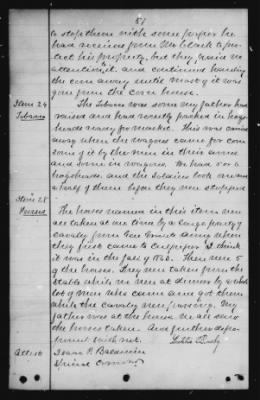 51
to stop them with some paper he
had received from Mr Clark to pro-
tect his property, but they paid no
attention to it, and continued hauling
the corn away until most of it was
gone from the corn house.
Item 24
Tobacco
The tobacco was some my father had
raised and had recently packed in hogs-
heads ready for market. This was carried
away when the wagons came for corn
some of it by the men in their arms
and some in wagons. We had
hogsheads, and the soldiers took
a half of them before they were stopped
Item 25
Horses
The horses named in this item
all taken at one time by a large party of
cavalry from Gen Grants army when
they first came to Culpeper I think
it was in the fall of 1863. There were 5
of the horses. They were taken from the
stable while we were at dinner by a whole
lot of men who came and got them
while the cavalry were passing. My
father was at the house. We all saw
the horses taken. And further depo-
nent saith not.
Attest